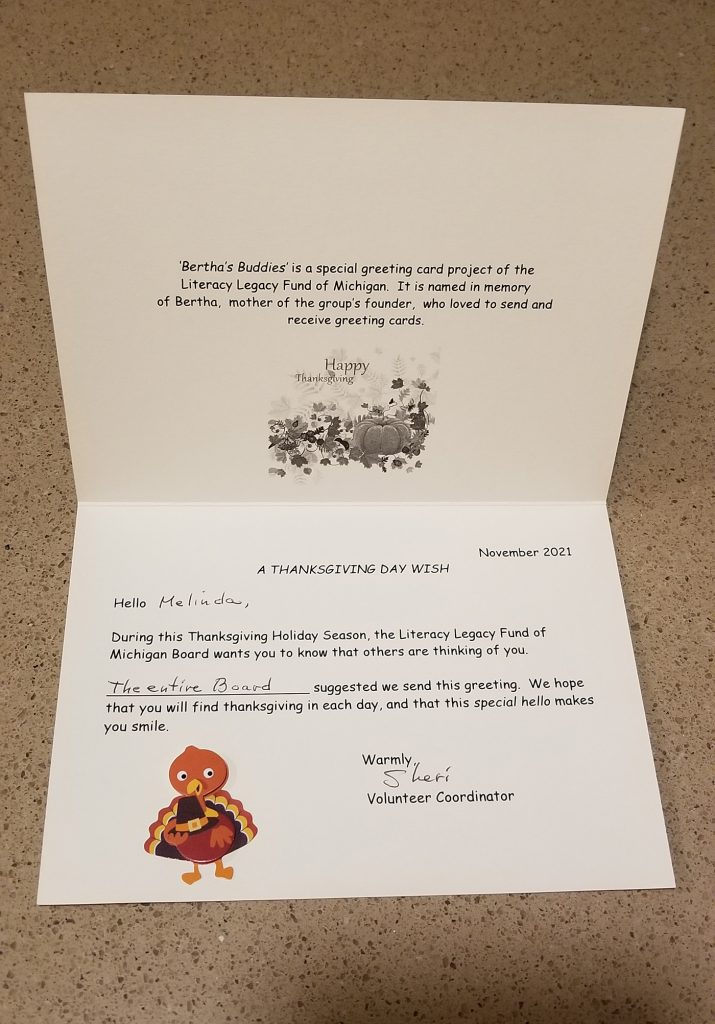 'Bertha's Buddies' is a special greeting card project of the
Literacy Legacy Fund of Michigan. It is named in memory
of Bertha, mother of the group's founder, who loved to send and
receive greeting cards.
Happy
Thanksgiving
November 2021
A THANKSGIVING DAY WISH
Hello Melinda,
During this Thanksgiving Holiday Season, the Literacy Legacy Fund of
Michigan Board wants you to know that others are thinking of you.
The entire Board suggested we send this greeting. We hope
that you will find thanksgiving in each day, and that this special hello makes
you smile.
Warmly,
Sheri
Volunteer Coordinator